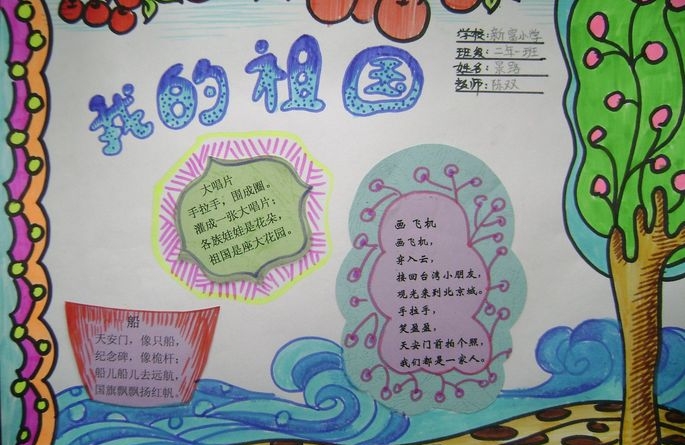 我的祖国
学校:新富小学
班级:二年一班
姓名:景路
教师:陈双
大唱片
手拉手，围成圈。
灌成一张大唱片；
各族娃娃是花朵，
祖国是座大花园。
画飞机
画飞机，
穿入云，
接回台湾小朋友，
观光来到北京城。
手拉手，
笑盈盈，
天安门首拍个照，
我们都是一家人。
船
天安门，像只船，
纪念碑，像桅杆；
船儿船儿去远航，
国旗飘飘扬红帆。